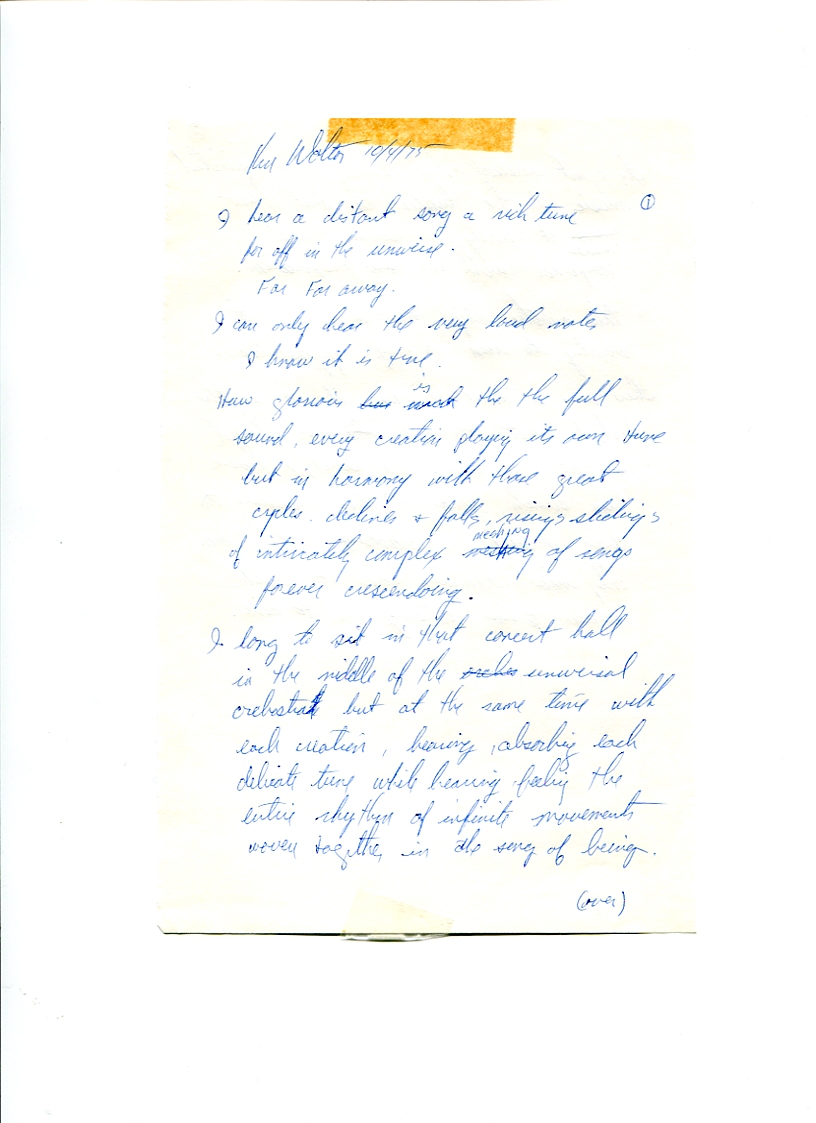 Ken Wolter 10/4/75
①
I hear a distant song a rich tune
far off in the universe.
Far Far away.
I can only hear the very loud notes
I know it is true.
How glorious is the the full
sound, every creation playing its own tune
but in harmony with those great
cycles. declines + falls, risings slidings
of intricately complex meshing of songs
forever crescendoing.
I long to sit in that concert hall
in the middle of the universal
orchestra but at the same time with
each creation, hearing, absorbing each
delicate tune while hearing feeling the
entire rhythm of infinite movements
woven together in the song of being.
(over)